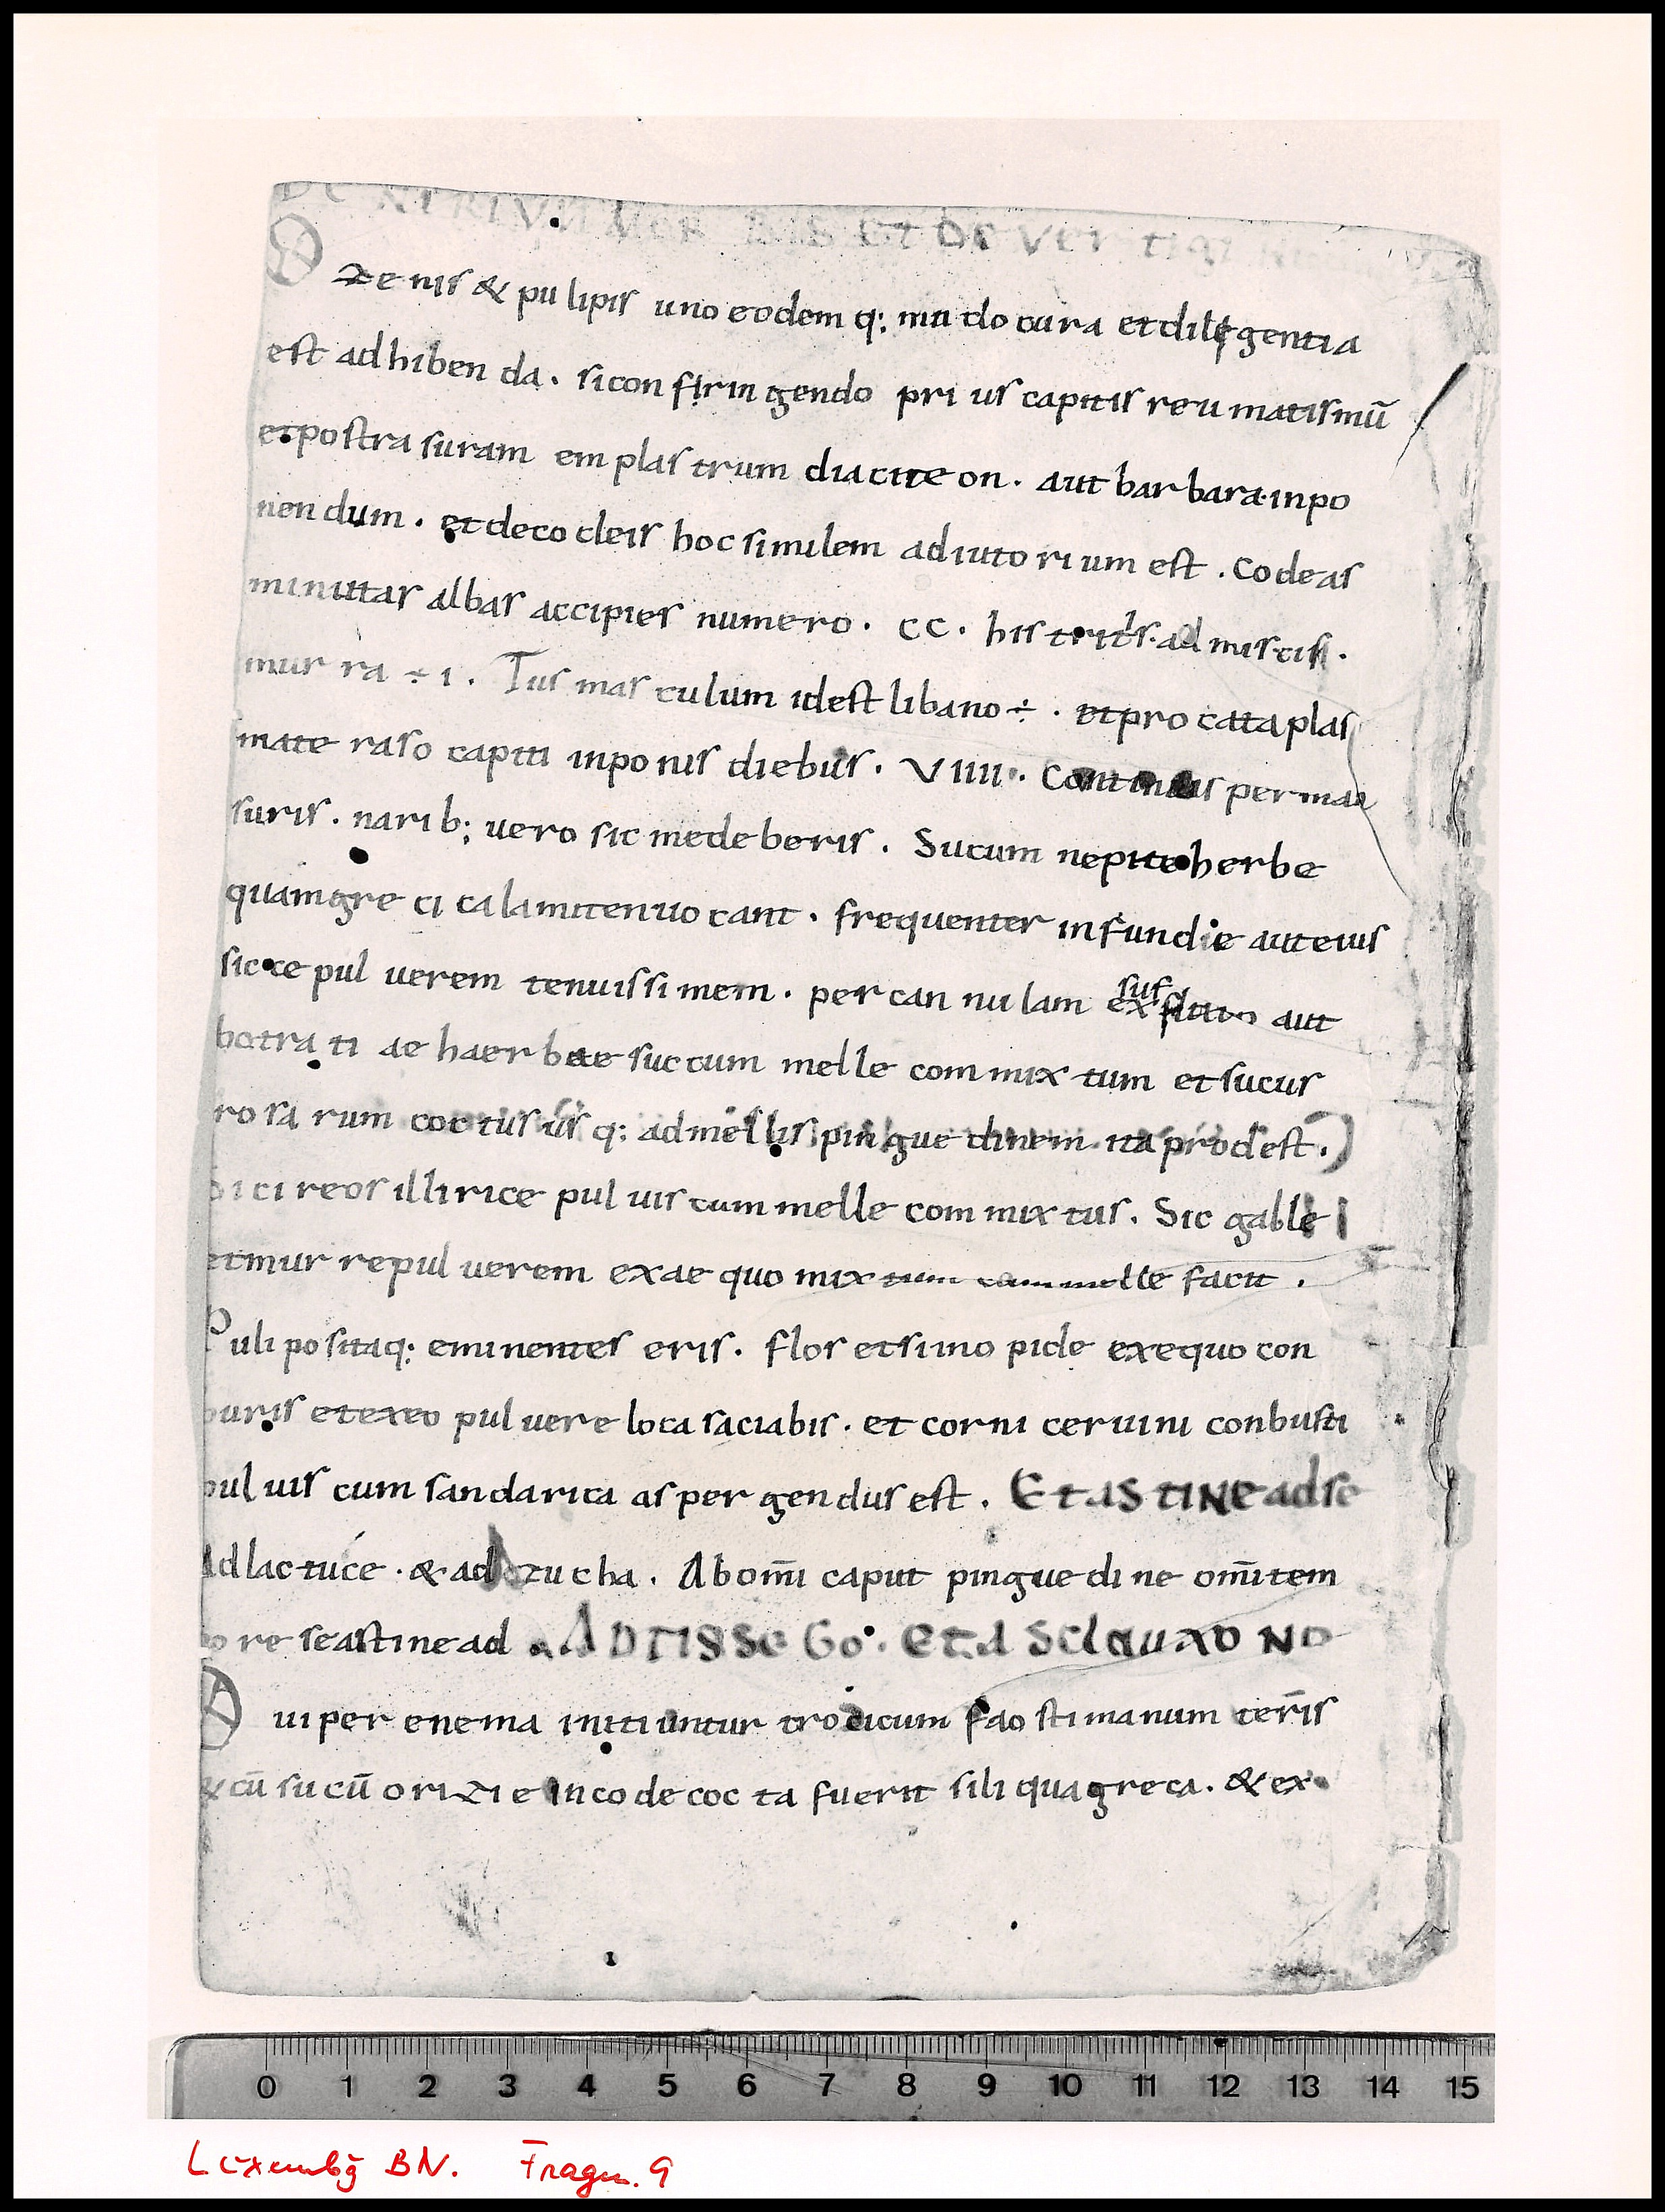 ET DE VERTIGI
Oze nis & pu lipis uno eodem q: mo do cura et diligentia
est ad hiben da. si con strin gendo pri us capitis reu matismū
et post ra suram em plas trum diacite on. aut bar bara inpo
nen dum. et de co cleis hoc similem ad iuto ri um est. Co de as
minutas albas accipies numero. CC. his tritis ad miscis.
mur ra ÷ i. Tus mas culum id est libano ÷. et pro cata plas
mate raso capiti inpo nis diebus. VIIII. Continuis per man
suris. narib; uero sic mede beris. Sucum nepite herbe
quam gre ci cala miten uo cant. frequenter in fundie aut eius
sicce pul uerem tenuissi mem. per can nu lam ex suf flato aut
batra ti ae haer bae suc cum melle com mix tum et sucus
ro sa rum coc tus us q: ad mellis pin gue dinem ita prodest.
si ci reos illirice pul uis cum melle com mix tus. Sic galle
et mur re pul uerem ex ae quo mix tum cum melle facit.
Puli po sitaq: eminentes eris. flos et simo pide ex equo con
buris et ex eo pul uere loca saciabis. et corni ceruini conbusti
pul uis cum sandarica as per gen dus est. Et as tine ad se
Ad lac tuce. & ad zu cha. Ab om̄i caput pingue di ne om̄i tem
po re se astine ad AD TISSE GO. Et a Sclauxo NO
Q ui per enema initiuntur trodicum fao sti manum ter̄is
& cū su cū o ri zi e in co de coc ta fuerit sili qua greca. & ex
0 1 2 3 4 5 6 7 8 9 10 11 12 13 14 15
Luxembg BN. Fragm. 9